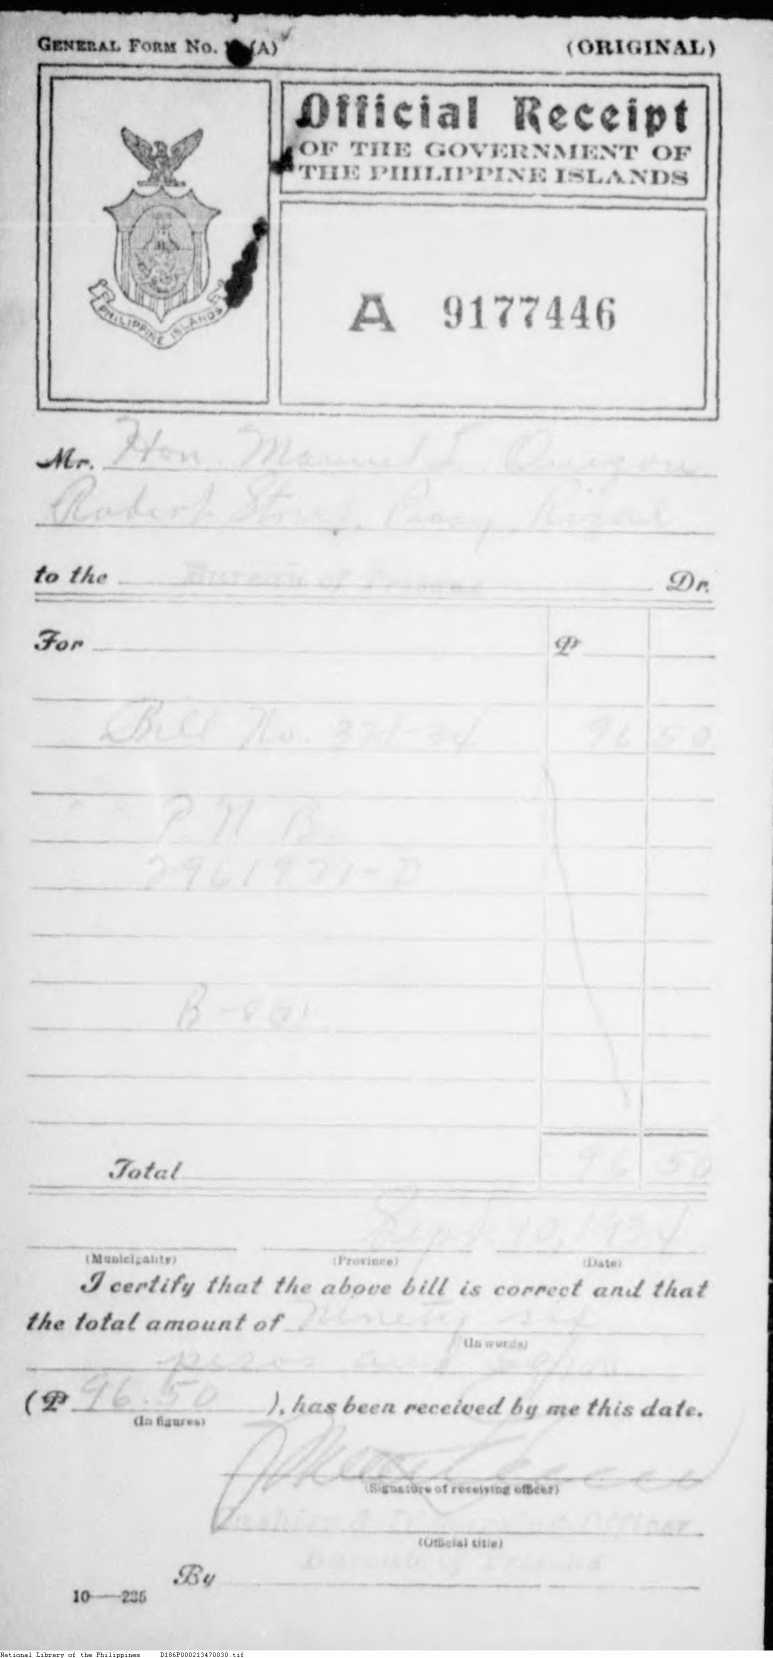 GENERAL FORM NO. (A)
(ORIGINAL)
Official Receipt
OF THE GOVERNMENT OF
THE PHILIPPINE ISLANDS
PHILIPPINE ISLANDS
A 9177446
Mr. Hon. Manuel L. Quezon
Street, Pasay, Rizal
to the Bureau of Prisons Dr.
For ₱
Bill No. 96 50
P. N. B.
Total 96 50
Sept. 10, 1934
(Municipality) (Province) (Date)
I certify that the above bill is correct and that
the total amount of Ninety six
(In words)
pesos and
(₱ 96.50 ), has been received by me this date.
(In figures)
(Signature of receiving officer)
Cashier & Disbursing Officer
(Official title)
Bureau of Prisons
By
10—235
National Library of the Philippines D186P000213470030.tif